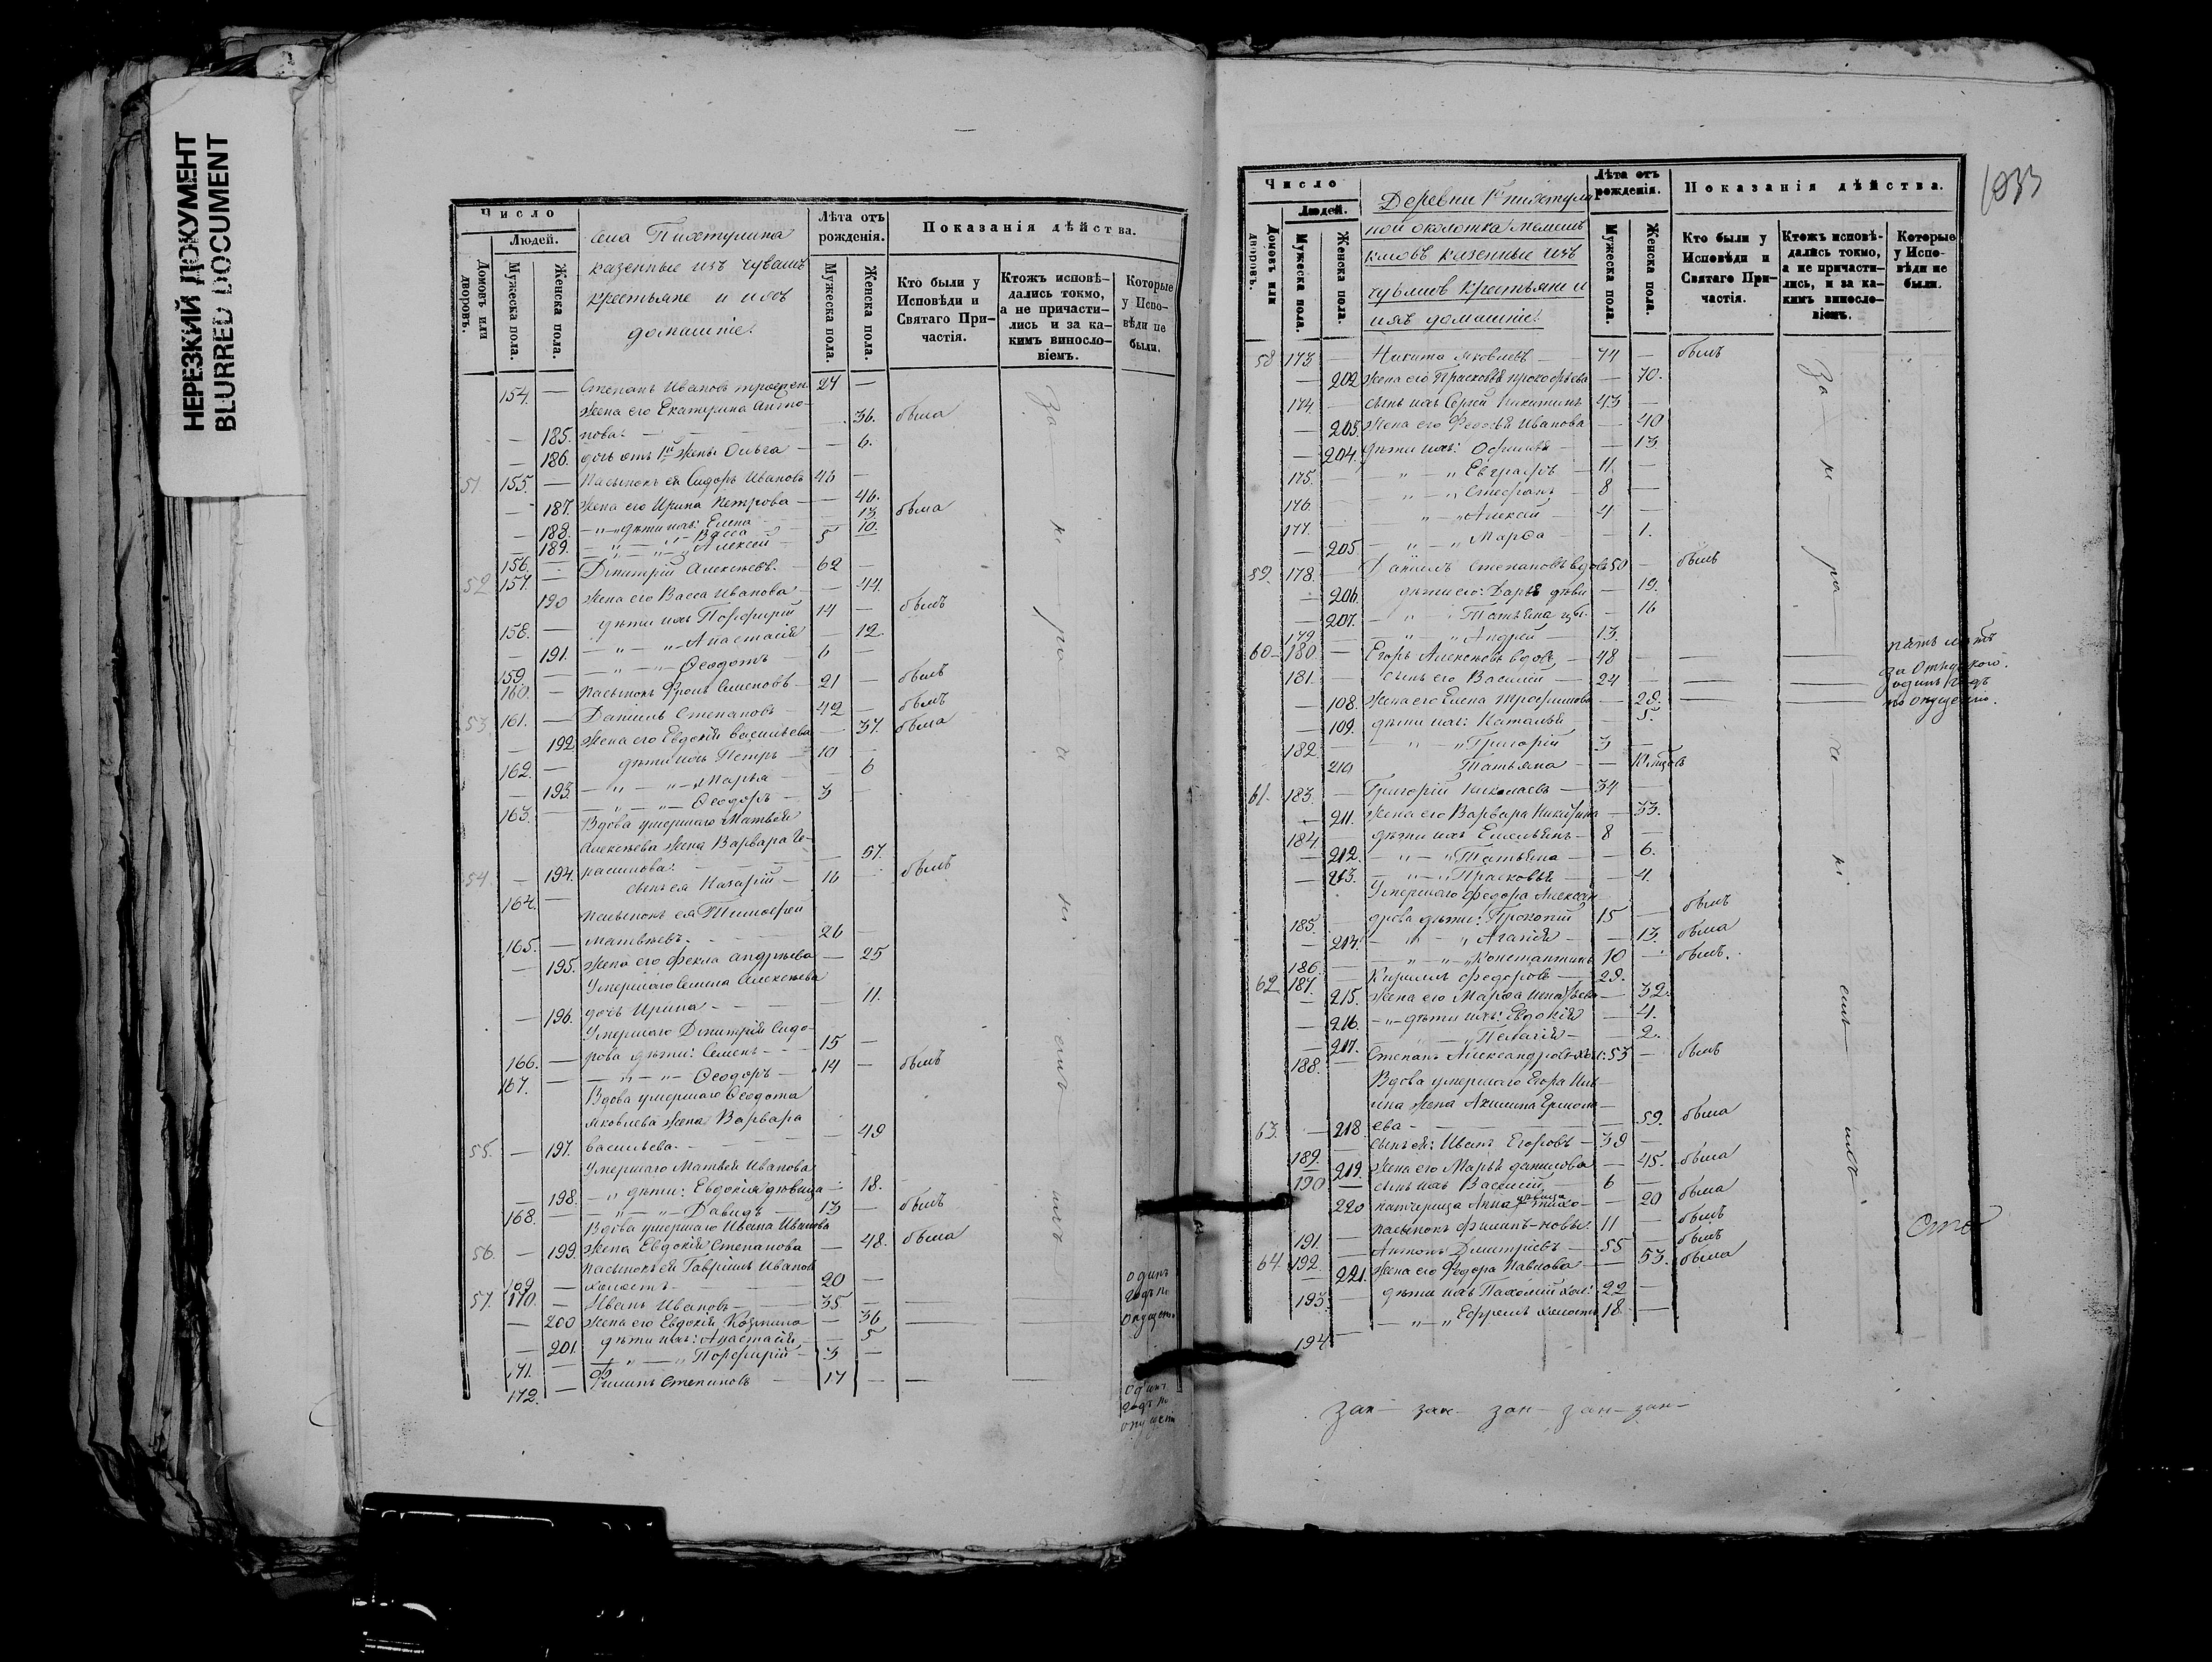 НЕРЕЗКИЙ ДОКУМЕНТ
BLURRED DOCUMENT
Число
Людей.
Домовъ или дворовъ.
Мужеска пола.
Женска пола.
Села Пихтулина
казенные изъ чувашъ
крестьяне и ихъ
домашніе.
Лѣта отъ рожденія.
Мужеска пола.
Женска пола.
Показанія дѣйства.
Кто были у Исповѣди и Святаго Причастія.
Ктожъ исповѣдались токмо, а не причастились и за какимъ винословіемъ.
Которые у Исповѣди не были.
154. — Степанъ Ивановъ 24 —
Жена его Екатерина Анто-
— 185. нова — 36. была
— 186. дочь отъ 1й жены Ольга — 6.
51. 155. — Пасынокъ ея Сидоръ Ивановъ 46 —
— 187. Жена его Ирина Петрова — 46. была
— 188. дѣти ихъ: Елена — 13
— 189. Васса — 10.
156. — Алексей 5
52 157. — Дмитрій Алексѣевъ 62 —
190 Жена его Васса Иванова — 44.
158. — дѣти ихъ Порфирій 14 — былъ
— 191. Анастасія — 12.
159. Ѳеодотъ 6 —
160. — Пасынокъ Фролъ Семеновъ 21 — былъ
53 161. — Данiилъ Степановъ 42 — былъ
— 192 Жена его Евдокія Васильева — 37. была
162. — дѣти ихъ Петръ 10 —
— 193. Марья — 6
163. — Ѳеодоръ 3 —
Вдова умершаго Матвея
Алексѣева жена Варвара Ге-
54 — 194. расимова — 57.
164. — сынъ ея Назарій 16 — былъ
Пасынокъ ея Тимоѳей
165. — Матвѣевъ 26 —
— 195. Жена его Фекла Андрѣева — 25
Умершаго Семена Алексѣева
— 196. дочь Ирина — 11.
Умершаго Дмитрія Сидо-
166. — рова дѣти: Семенъ 15 —
167. — Ѳеодоръ 14 — былъ
Вдова умершаго Ѳеодота
Яковлева жена Варвара
55. — 197. Васильева — 49
Умершаго Матвея Иванова
— 198. дѣти: Евдокія дѣвица — 18.
168. — Давидъ 13 — былъ
Вдова умершаго Ивана Иванова
56. — 199 Жена Евдокія Степанова — 48. была
Пасынокъ ея Гаврiилъ Иванов
169 — холостъ 20 —
57. 170. — Иванъ Ивановъ 35 — одинъ годъ по опущен.
— 200 Жена его Евдокія Козмина — 36
— 201 дѣти ихъ: Анастасія — 5
171. — Порфирій 3 —
172. — Филипъ Степановъ 17 — одинъ годъ по опущенiи
За не ра че ні емъ ихъ
1033
Число
Людей.
Домовъ или дворовъ.
Мужеска пола.
Женска пола.
Деревни 1й Пихтули
ной околотка
казенные изъ
чувашъ крестьяне и
ихъ домашніе.
Лѣта отъ рожденія.
Мужеска пола.
Женска пола.
Показанія дѣйства.
Кто были у Исповѣди и Святаго Причастія.
Ктожъ исповѣдались токмо, а не причастились, и за какимъ винословіемъ.
Которые у Исповѣди не были.
58 173. — Никита Яковлевъ 74 — былъ
— 202 Жена его Прасковья Прокофьева — 70.
174. — сынъ ихъ Сергій Никитинъ 43 —
— 203. Жена его Федосья Иванова — 40
— 204. дѣти ихъ: Офимья — 13.
175. — Евграфъ 11 —
176. Стефанъ 8 —
177. Алексей 4 —
— 205 Марѳа — 1.
59. 178. — Данiилъ Степановъ вдовъ 50 — былъ
— 206. дѣти его: Дарья дѣви — 19.
— 207. Татьяна — 16
179 — Андрей 13.
60 180 — Егоръ Алексѣевъ вдовъ 48
181. — сынъ его Василій 24
— 108. Жена его Елена Трофимова — 28.
— 109. дѣти ихъ: Наталья — 5.
182. — Григорій 3 —
210 Татьяна —
пять
за отлучкою.
одинъ годъ
по опущенiю.
61. 183. — Григорій Николаевъ 34 —
— 211. Жена его Варвара Никитина — 33.
184. — дѣти ихъ Емельянъ 8 —
— 212. Татьяна — 6.
— 213. Прасковья — 4.
Умершаго Федора Алексан
185. дрова дѣти: Прокопій 15 — былъ
— 214. Агафія — 13. была
186. Константинъ 10 — былъ.
62 187. — Кирилъ Федоровъ 29.
— 215. Жена его Марѳа Игнатьева — 32.
— 216. дѣти ихъ: Евдокія — 4.
— 217. Пелагія — 2.
188. — Степанъ Александровъ хол: 53 — былъ
Вдова умершаго Егора Иль-
ина жена Акилина Ермола-
63. — 218. ева — 59. была
189. сынъ ея: Иванъ Егоровъ 39 —
— 219. Жена его Марья Данилова — 45. была
190 — сынъ ихъ Василій 6 —
220 падчерица Анна дѣвица — 20 была
191. — пасынокъ Филипъ 11 — былъ
64 192. — Антонъ Дмитріевъ 55 — былъ
— 221. Жена его Федора Павлова — 53. была
193. — дѣти ихъ Пахомій хол: 22 —
194 — Ефремъ холостъ 18. —
За не ра че ні емъ ихъ
зак— зак— зак— зак— зак—